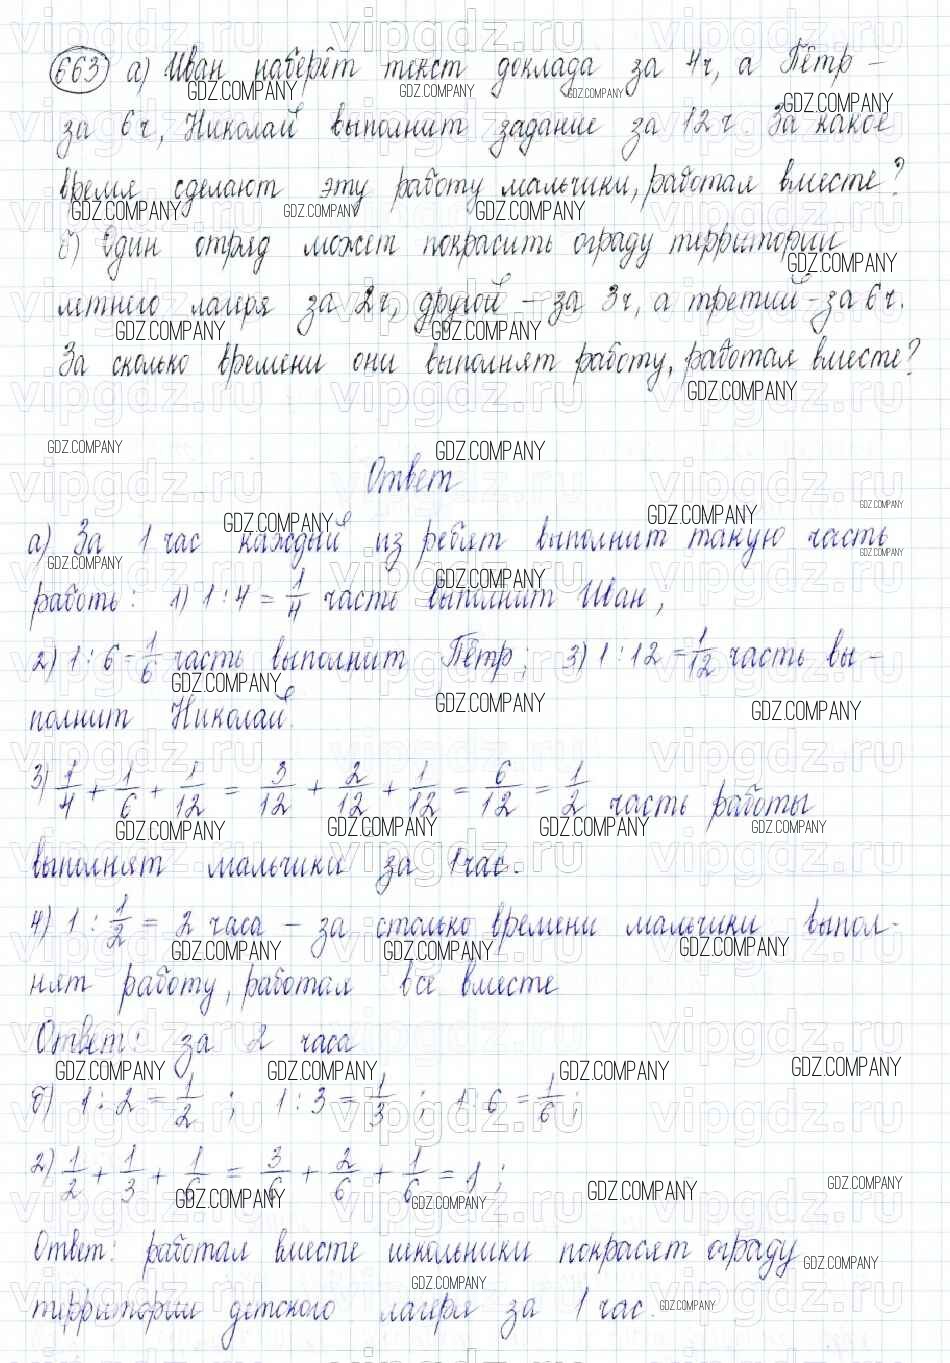 663) а) Иван наберёт текст доклада за 4ч, а Пётр –
за 6ч, Николай выполнит задание за 12ч. За какое
время сделают эту работу мальчики, работая вместе?
б) Один отряд может покрасить ограду территории
летнего лагеря за 2ч, другой – за 3ч, а третий – за 6ч.
За сколько времени они выполнят работу, работая вместе?
Ответ
а) За 1 час каждый из ребят выполнит такую часть
работы: 1) 1 : 4 = 1/4 часть выполнит Иван,
2) 1 : 6 = 1/6 часть выполнит Пётр; 3) 1 : 12 = 1/12 часть вы-
полнит Николай.
3) 1/4 + 1/6 + 1/12 = 3/12 + 2/12 + 1/12 = 6/12 = 1/2 часть работы
выполнят мальчики за 1 час.
4) 1 : 1/2 = 2 часа – за столько времени мальчики выпол-
нят работу, работая все вместе
Ответ: за 2 часа
б) 1 : 2 = 1/2 ; 1 : 3 = 1/3 ; 1 : 6 = 1/6 ;
2) 1/2 + 1/3 + 1/6 = 3/6 + 2/6 + 1/6 = 1 ;
Ответ: работая вместе школьники покрасят ограду
территории детского лагеря за 1 час.
GDZ.COMPANY
vipgdz.ru